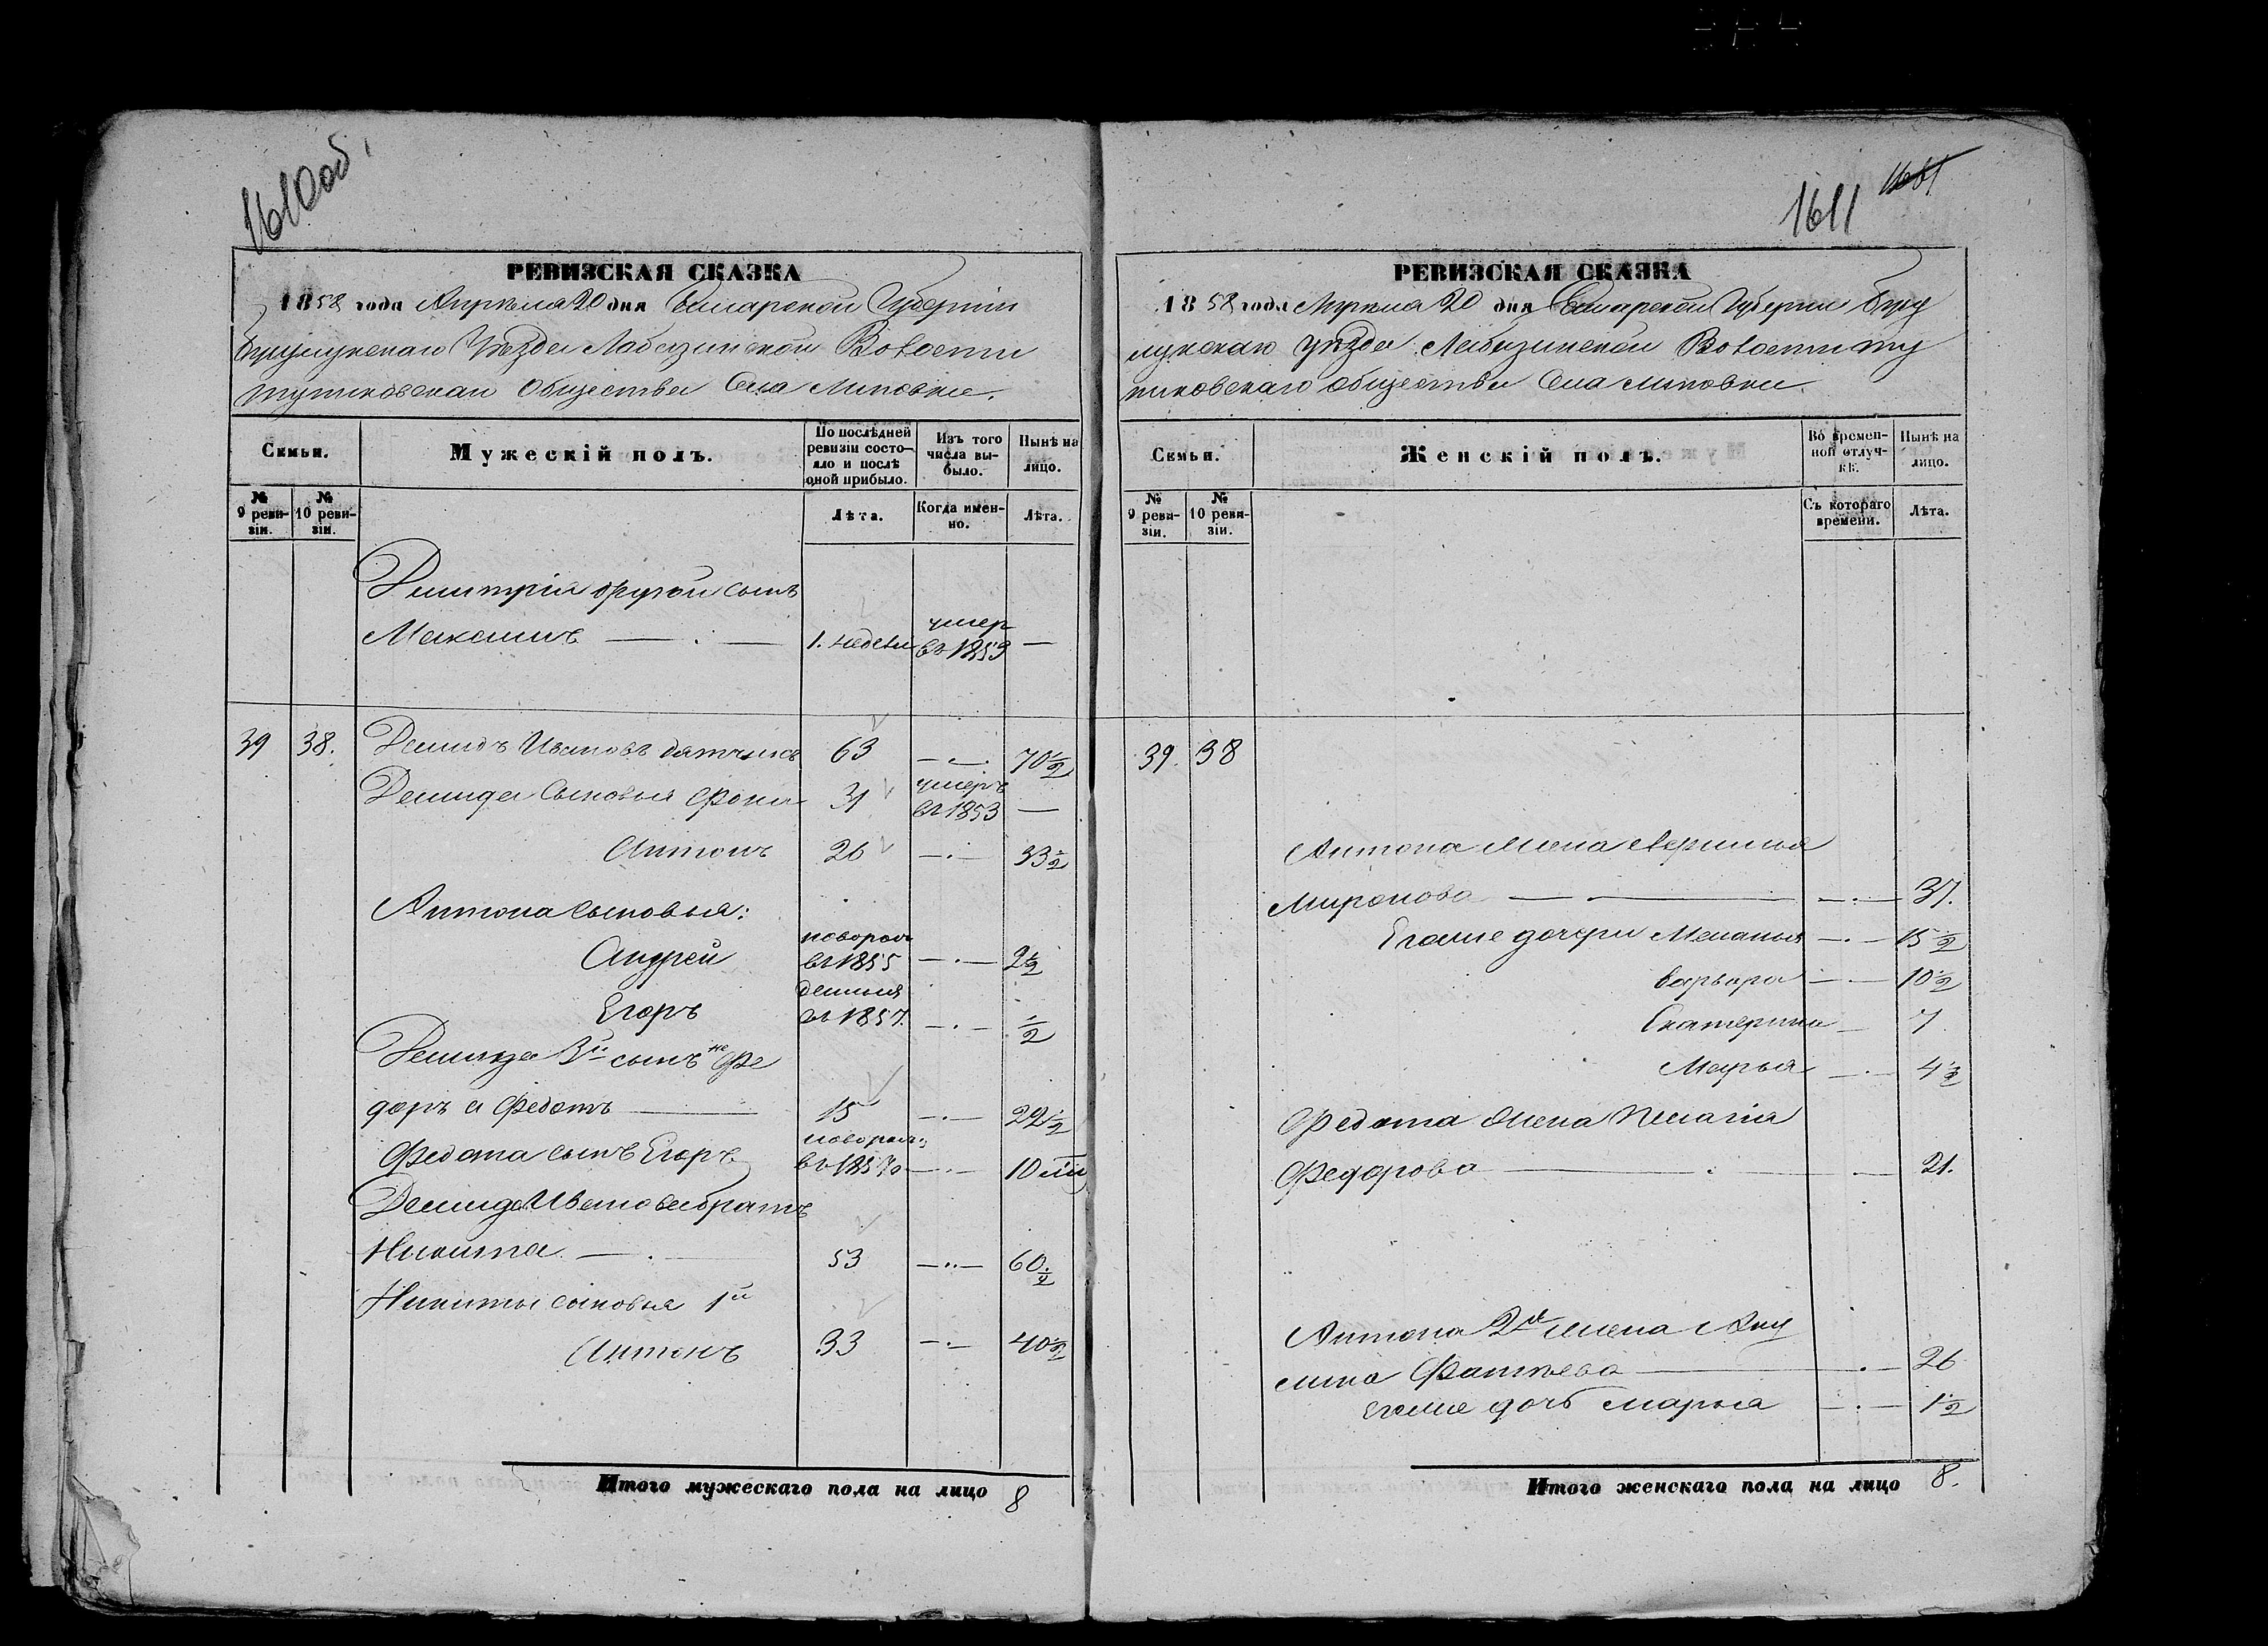 1610 об.
РЕВИЗСКАЯ СКАЗКА
1858 года Апреля 20 дня Самарской Губернии
Бузулукскаго Уезда Лабазинской Волости
Общества Села Липовки.
Семьи.
Мужескій полъ.
По послѣдней ревизіи состо-
яло и послѣ
оной прибыло.
Изъ того
числа вы-
было.
Нынѣ на
лицо.
№
9 реви-
зіи.
№
10 реви-
зіи.
Лѣта.
Когда имен-
но.
Лѣта.
Дмитрія другой сынъ
Максимъ — 1. недели умер въ 1853 —
39 38. Демидъ Ивановъ 63 — 70 1/2
Демида сыновья Фома 31 умеръ въ 1853 —
Антонъ 26 — 33 1/2
Антона сыновья:
Андрей новорож въ 1855 — 2 1/2
Егоръ въ 1857. — 1/2
Демида 3й сынъ не Фе
доръ а Федотъ — 15 — 22 1/2
Федота сынъ Егоръ новорож: — 10 м
Демида Иванова братъ
Никита — 53 — 60 1/2
Никиты сыновья 1й
Антонъ 33 — 40 1/2
Итого мужескаго пола на лицо 8
1611
РЕВИЗСКАЯ СКАЗКА
1858 года Апреля 20 дня Самарской Губернии Бузу
лукскаго Уезда Лабазинской Волости
Общества Села Липовки.
Семьи.
Женскій полъ.
Во времен-
ной отлуч-
кѣ.
Нынѣ на
лицо.
№
9 реви-
зіи.
№
10 реви-
зіи.
Съ котораго
времени.
Лѣта.
39. 38
Антона жена
Миронова — 37.
Егоже дочери Меланья — 15 1/2
Варвара — 10 1/2
Екатерина — 7
Марья — 4 1/2
Федота жена Пелагія
Федорова — 21.
Антона 2я жена Аку
лина — 26
Егоже дочь Марья — 1 1/2
Итого женскаго пола на лицо 8.